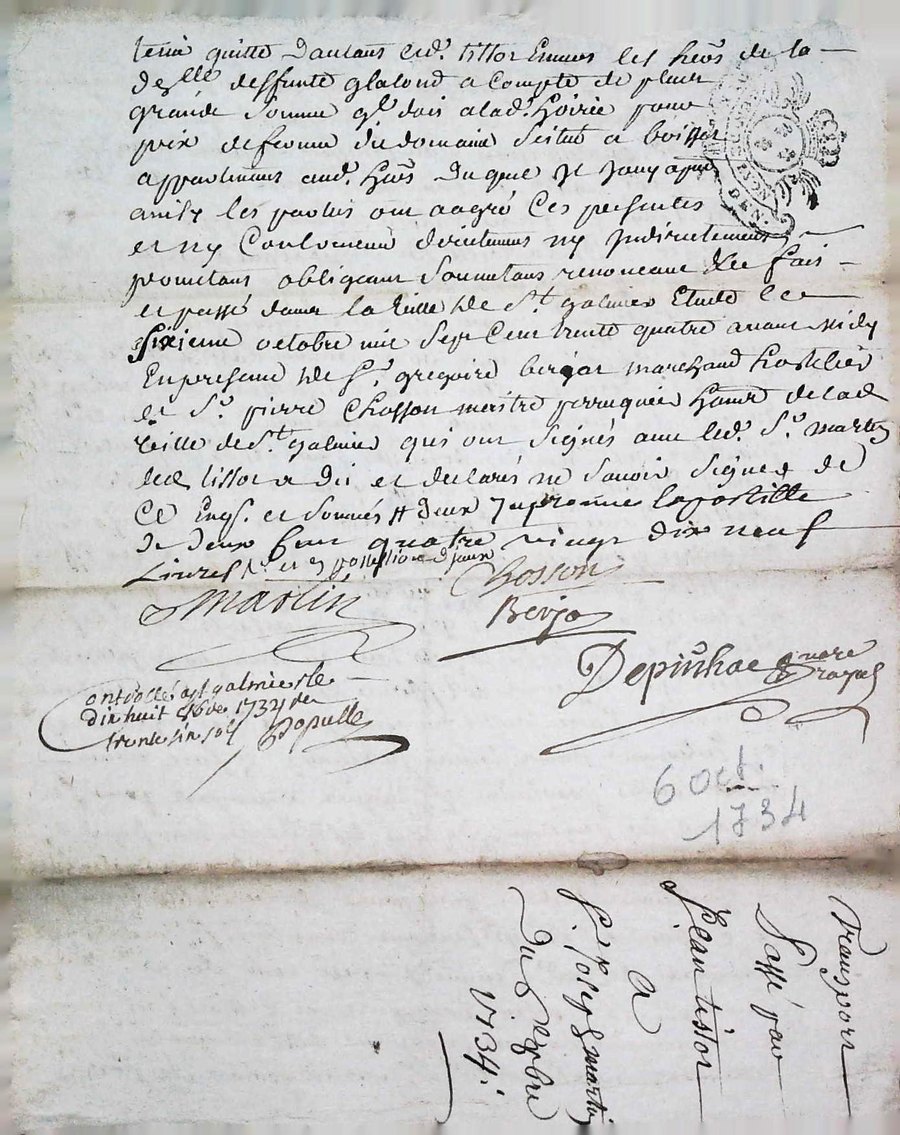 tenir quitte dautans led. tissot Envers les hers de la
deslle deffunte glatoud a compte de plus
grande Somme ql. dois a lad. hoirie pour
prix de ferme du domaine Scitué a boisset
appartenant aud. hers duquel Il Jouy
ainsy les parties ont aagré Ces presentes
et ny Contrevenir directemens ny Indirectement
prometans obligeant Soumetans renonceant &c fais
et passé dans la ville de St. galmier Etude le
sixieme octobre mil Sept Cent trente quatre avant midy
En presence de Sr. gregoire berjat marchand hostelier
et Sr. pierre Chosson maitre perruquier hants de lad
ville de St. galmier qui ont Signés avec led. Sr. martin
led tissot a dit et declarés ne Savoir Signer de
Ce Enqs. et Sommés # deux Inpronue lapostille
de deux Cent quatre vingt dix neuf
Livres
Martin
Chosson
Berja
Depinhac
ontrollé a st galmier le
dix huit 8bre 1734 Ru
trente six sols
6 oct.
1734
Transport
Passé par
Jean tissot
a
Sr. Joseph martin
du 6 8bre
1734.